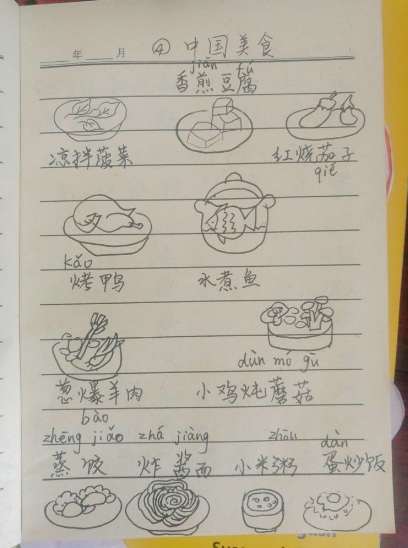 年 月 ④ 中国美食
jiān fú
香煎豆腐
凉拌菠菜 红烧茄子
qié
kǎo
烤鸭 水煮鱼
dùn mó gū
葱爆羊肉 小鸡炖蘑菇
bào
zhēng jiǎo zhá jiàng zhōu dàn
蒸饺 炸酱面 小米粥 蛋炒饭